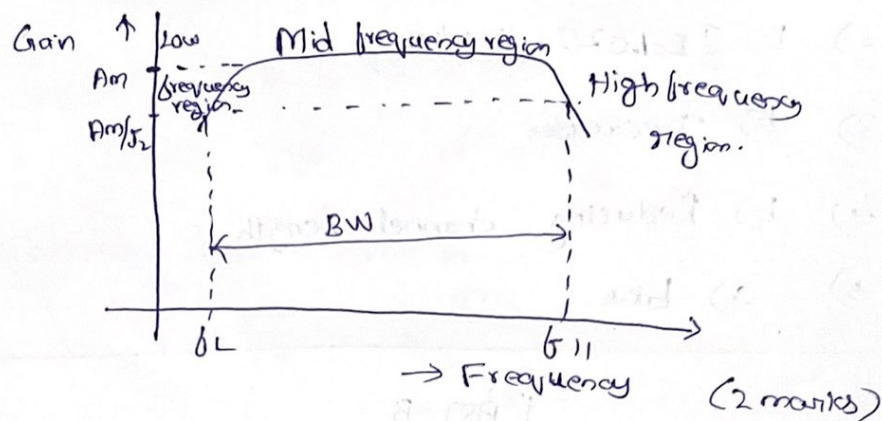 Gain
Low
frequency
region.
Mid frequency region
Am
Am/√2
High frequency
region.
BW
fL
fH
→ Frequency
(2 marks)